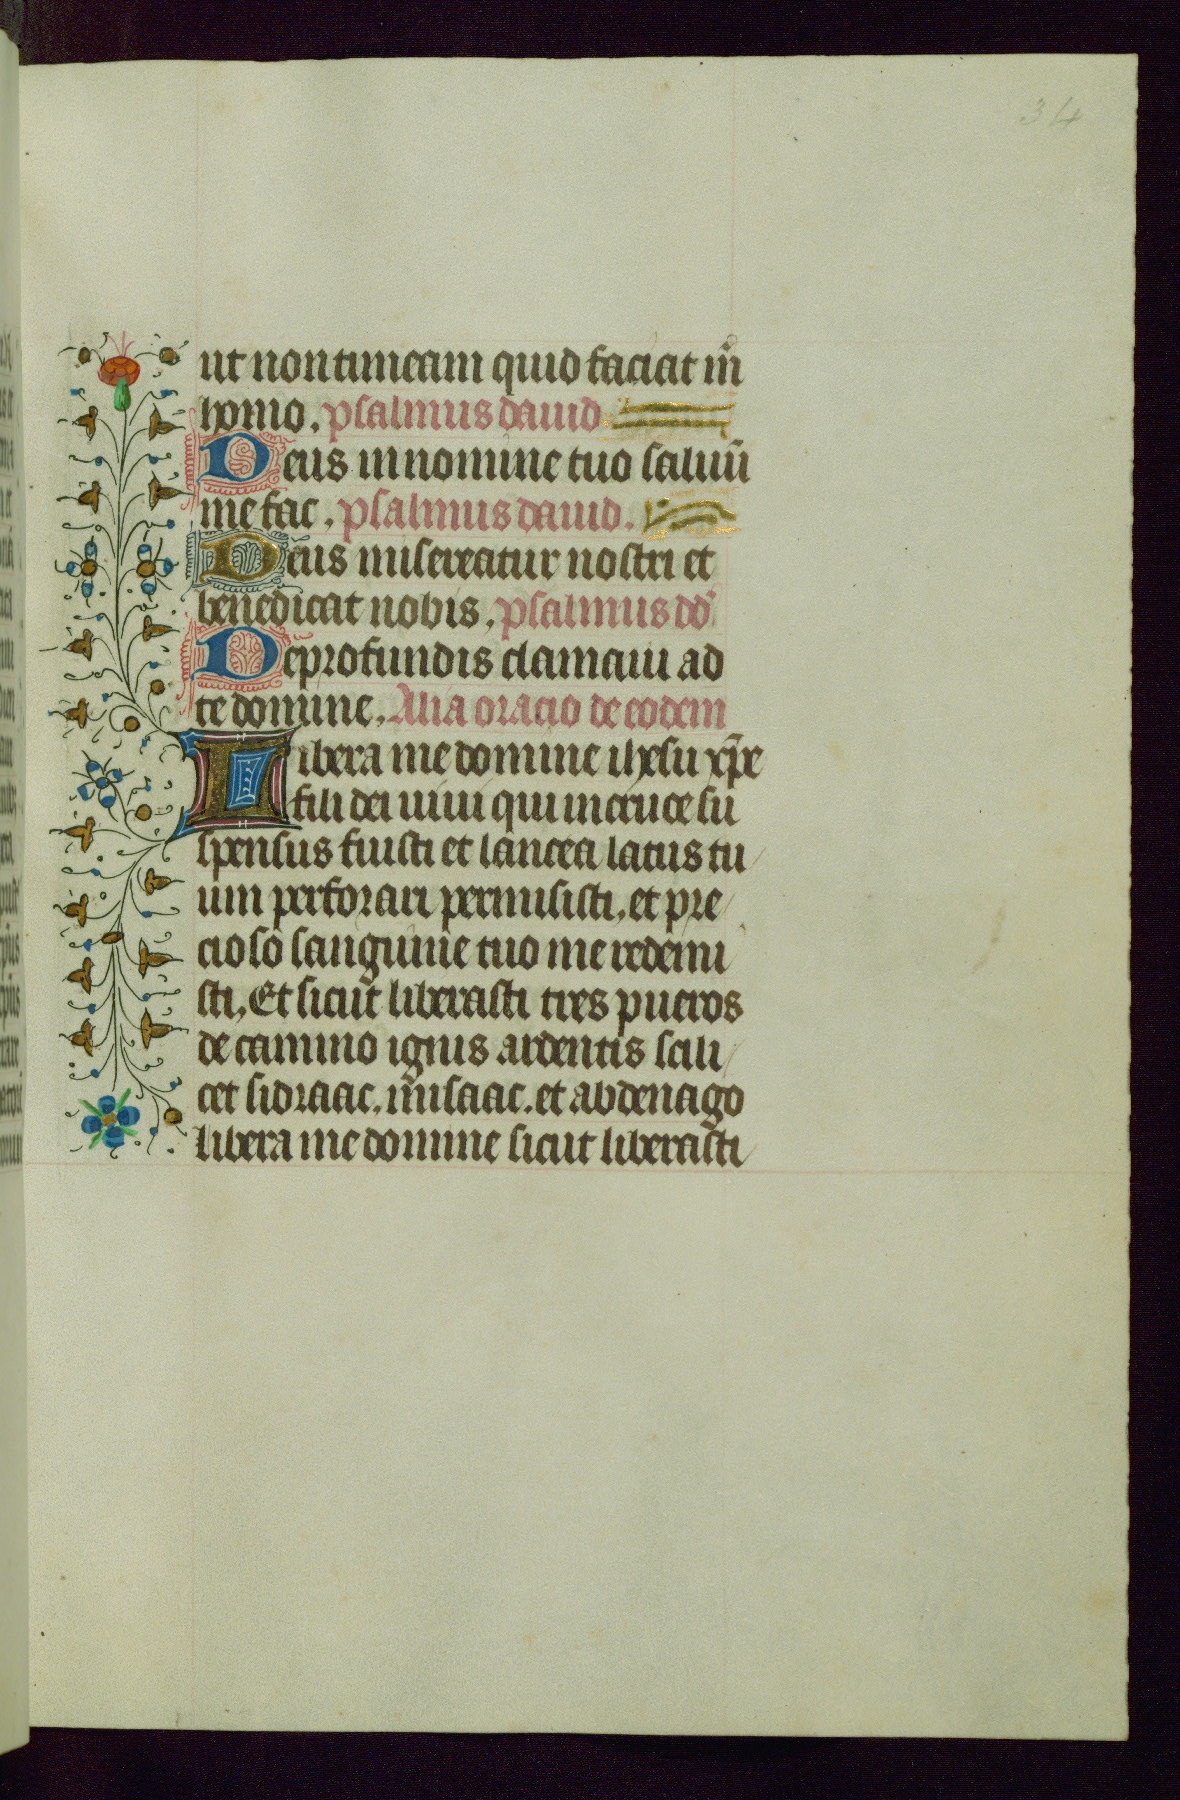 34
ut non timeam quid faciat m̄
homo. psalmus dauid
Deus in nomine tuo saluū
me fac. psalmus dauid.
Deus misereatur nostri et
benedicat nobis. psalmus dd̄
De profundis clamaui ad
te domine. Alia oracio de eodem
Libera me domine ihesu xp̄e
fili dei uiui qui in cruce su
spensus fuisti et lancea latus tu
um perforari permisisti. et pre
cioso sanguine tuo me redemi
sti. Et sicut liberasti tres pueros
de camino ignis ardentis scili
cet sidraac. misaac. et abdenago
libera me domine sicut liberasti